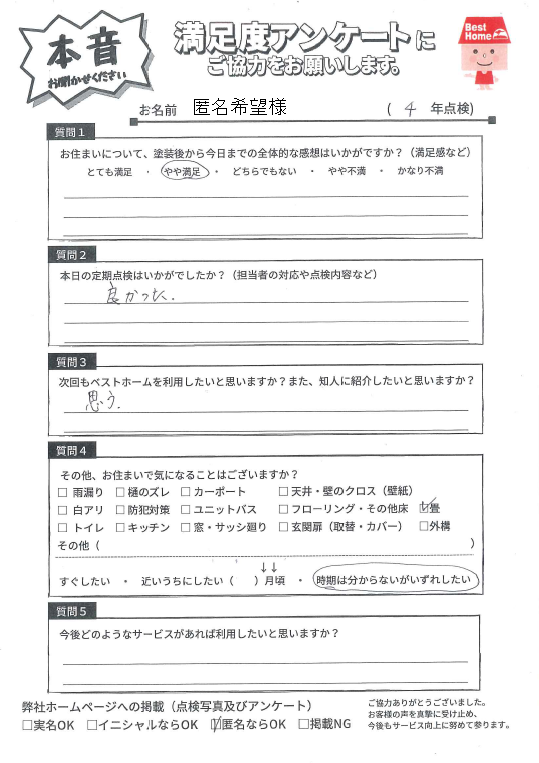 本音
お聞かせください
満足度アンケートに
ご協力をお願いします。
Best Home
お名前 匿名希望様 ( 4 年点検)
質問1
お住まいについて、塗装後から今日までの全体的な感想はいかがですか？（満足感など）
とても満足 ・ やや満足 ・ どちらでもない ・ やや不満 ・ かなり不満
質問2
本日の定期点検はいかがでしたか？（担当者の対応や点検内容など）
良かった.
質問3
次回もベストホームを利用したいと思いますか？また、知人に紹介したいと思いますか？
思う.
質問4
その他、お住まいで気になることはございますか？
□ 雨漏り □ 樋のズレ □ カーポート □ 天井・壁のクロス（壁紙）
□ 白アリ □ 防犯対策 □ ユニットバス □ フローリング・その他床 ☑畳
□ トイレ □ キッチン □ 窓・サッシ廻り □ 玄関扉（取替・カバー） □外構
その他（ ）
↓↓
すぐしたい ・ 近いうちにしたい（ ）月頃 ・ 時期は分からないがいずれしたい
質問5
今後どのようなサービスがあれば利用したいと思いますか？
弊社ホームページへの掲載（点検写真及びアンケート）
□実名OK □イニシャルならOK ☑匿名ならOK □掲載NG
ご協力ありがとうございました。
お客様の声を真摯に受け止め、
今後もサービス向上に努めて参ります。